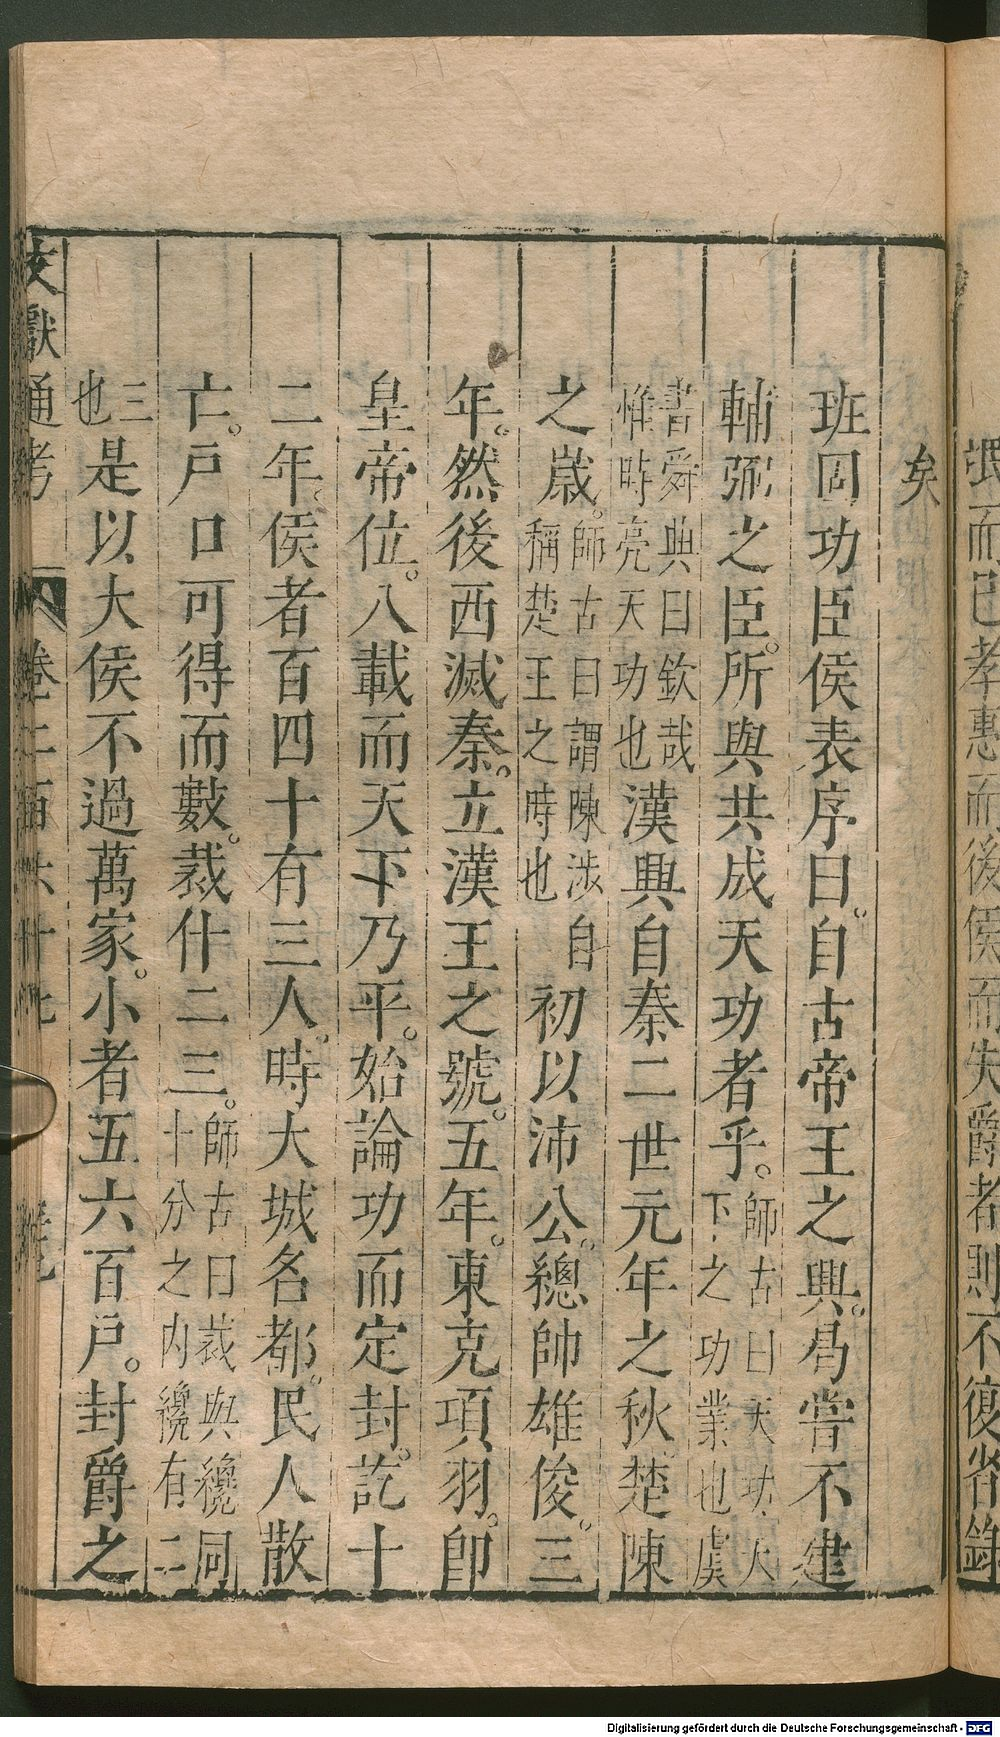 矣
班固功臣侯表序曰。自古帝王之興。曷嘗不建
輔弼之臣。所與共成天功者乎。師古曰天功天下之功業也虞
書舜典曰欽哉惟時亮天功也漢興自秦二世元年之秋楚陳
之歲。師古曰謂陳涉自稱楚王之時也初以沛公。總帥雄俊。三
年。然後西滅秦。立漢王之號。五年。東克項羽。卽
皇帝位。八載而天下乃平。始論功而定封。訖十
二年。侯者百四十有三人。時大城名都。民人散
亡。戸口可得而數。裁什二三。師古曰裁與纔同十分之内纔有二
三也是以大侯不過萬家。小者五六百戸。封爵之
文獻通考 卷二百六十七
而已孝惠而後侯而失爵者則不復省錄
Digitalisierung gefördert durch die Deutsche Forschungsgemeinschaft - DFG